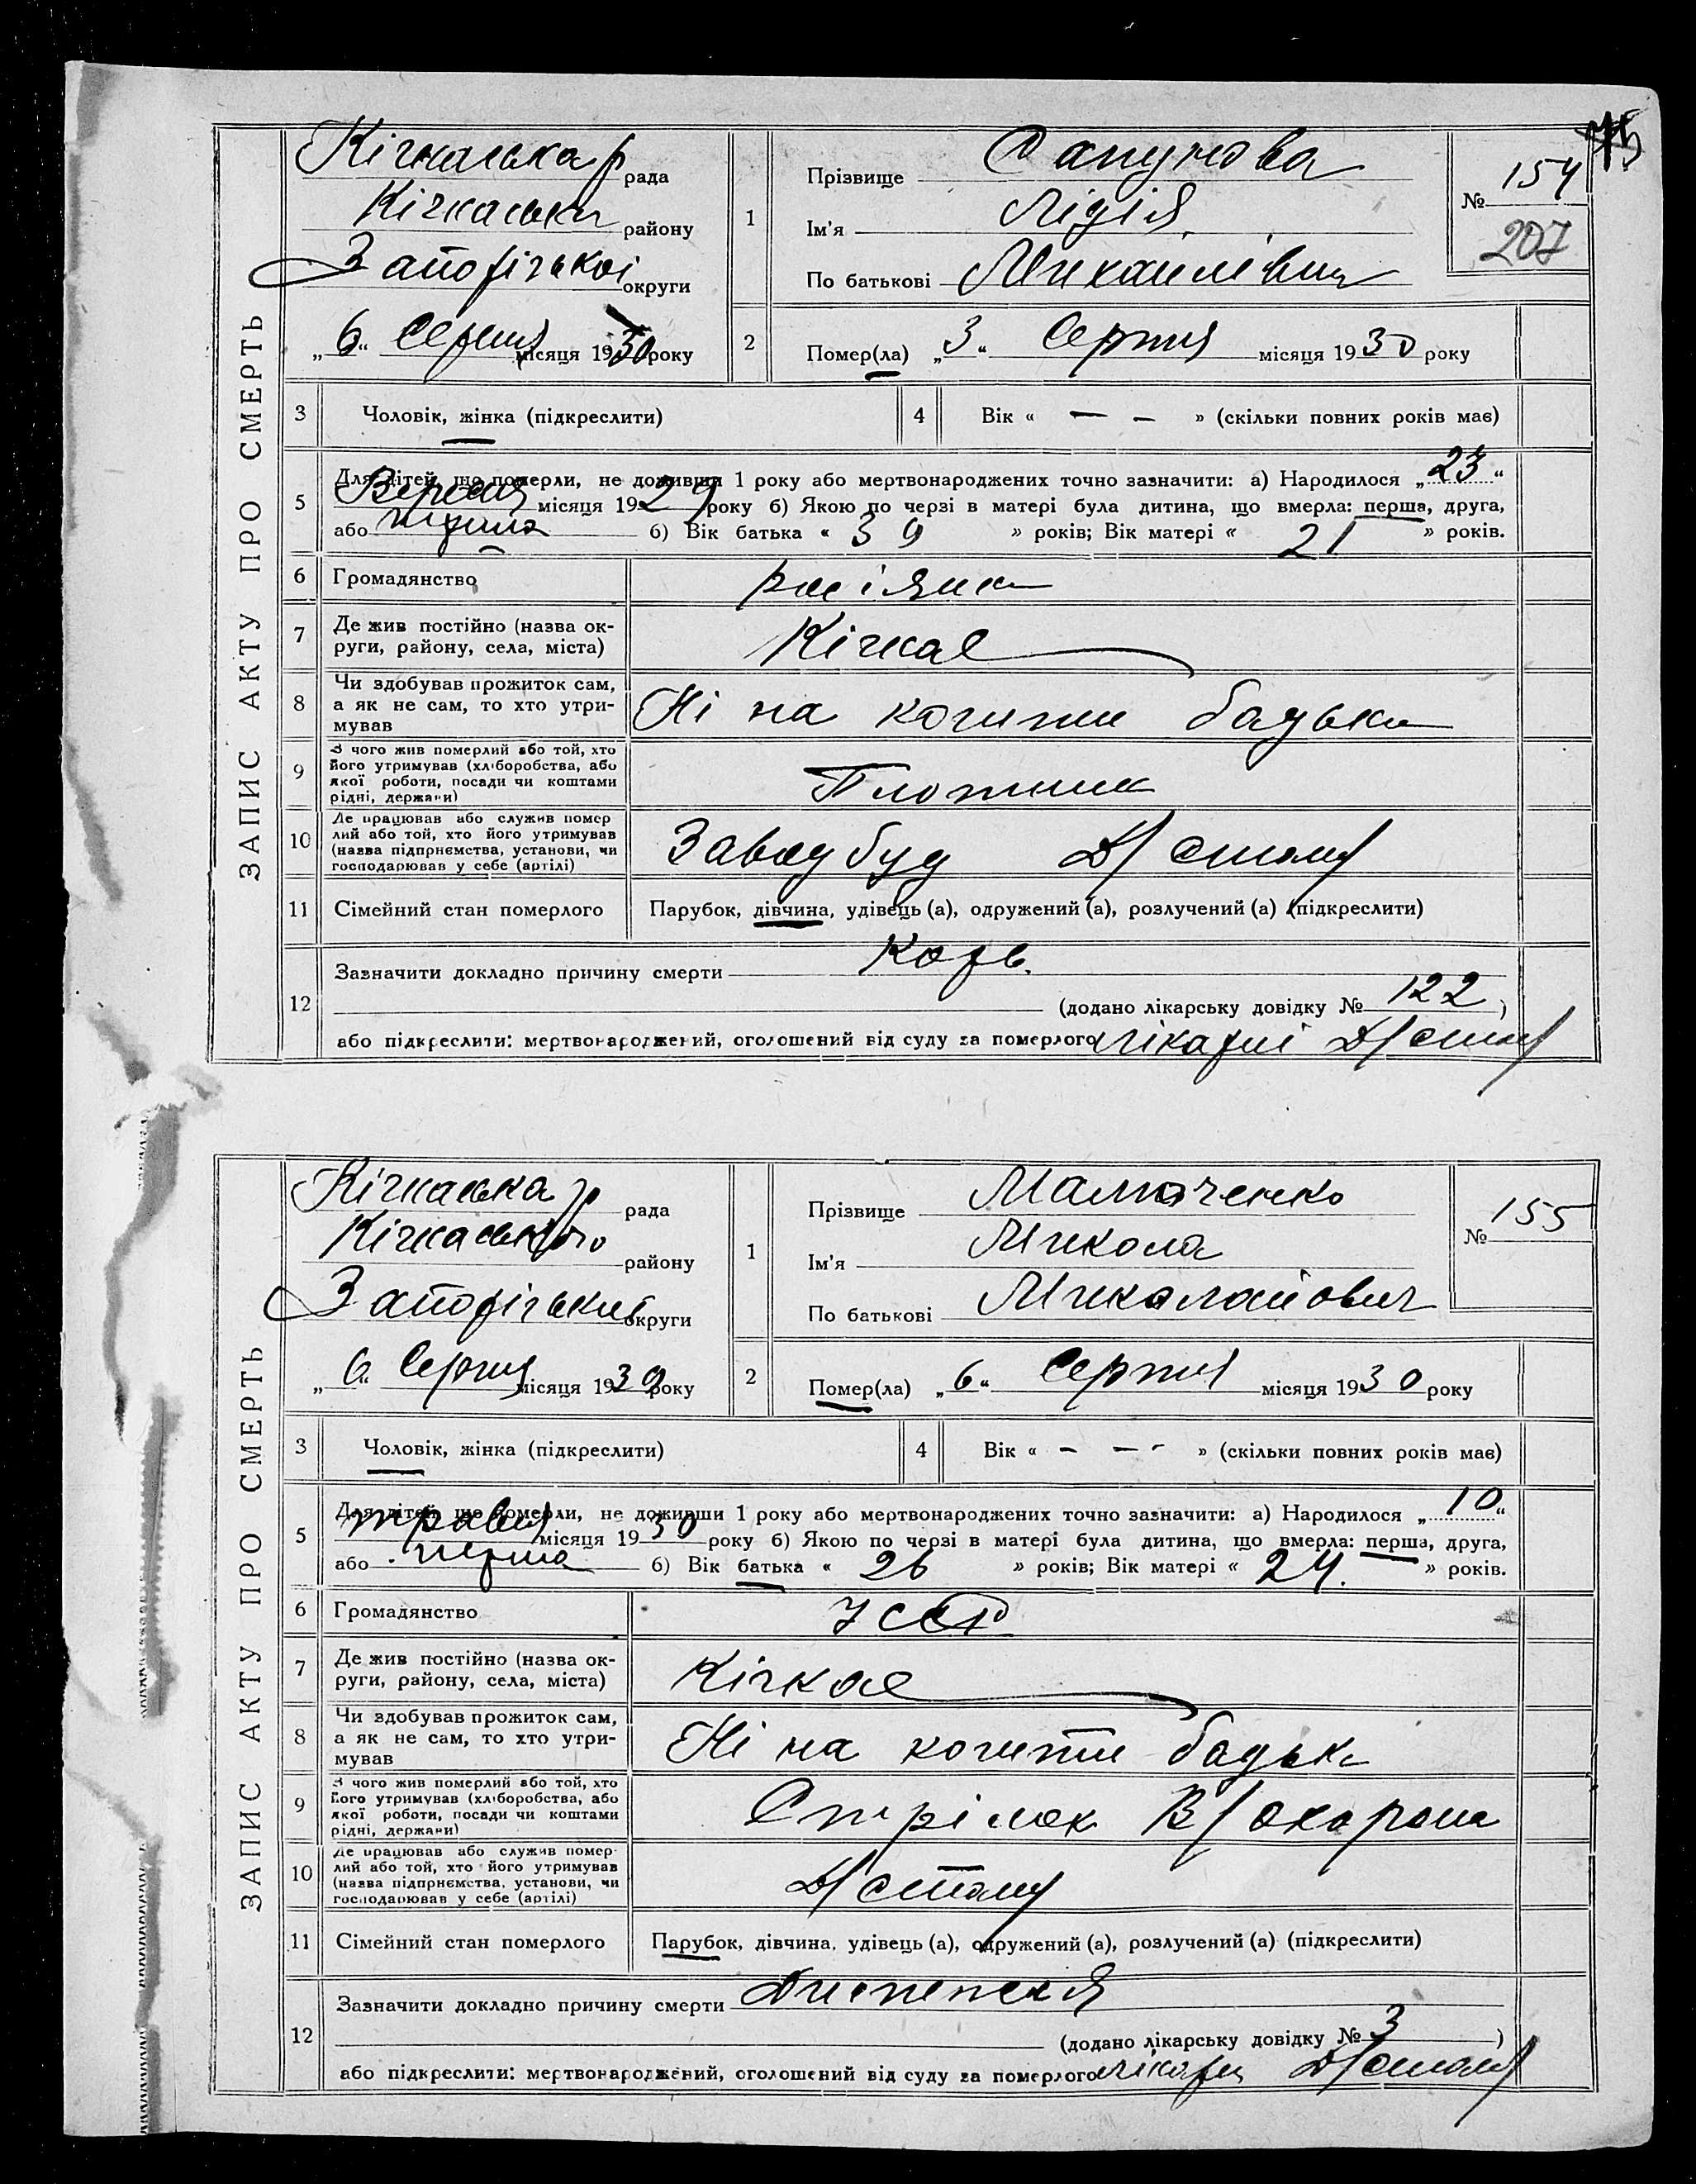 75
ЗАПИС АКТУ ПРО СМЕРТЬ
Кічкаська р рада
Кічкаськ району
Запорізької округи
„6“ Серпня місяця 1930 року
1
Прізвище Сапунова
Ім'я Лідія
По батькові Михайлівна
№ 154
207
2 Помер(ла) „3“ Серпня місяця 1930 року
3 Чоловік, жінка (підкреслити)
4 Вік « — — » (скільки повних років має)
5 Для дітей, що померли, не доживши 1 року або мертвонароджених точно зазначити: а) Народилося „23“
Вересня місяця 1929 року б) Якою по черзі в матері була дитина, що вмерла: перша, друга,
або перша б) Вік батька « 39 » років; Вік матері « 21 » років.
6 Громадянство росіянка
7 Де жив постійно (назва ок-
руги, району, села, міста) Кічкас
8 Чи здобував прожиток сам,
а як не сам, то хто утри-
мував Ні на кошти батька
9 З чого жив померлий або той, хто
його утримував (хліборобства, або
якої роботи, посади чи коштами
рідні, держави) Плотник
10 Де працював або служив помер
лий або той, хто його утримував
(назва підприємства, установи, чи
господарював у себе (артілі) Заводбуд Д/стану
11 Сімейний стан померлого Парубок, дівчина, удівець (а), одружений (а), розлучений (а) (підкреслити)
12 Зазначити докладно причину смерти Корь.
(додано лікарську довідку № 122)
або підкреслити: мертвонароджений, оголошений від суду за померлого лікарні Д/стану
ЗАПИС АКТУ ПРО СМЕРТЬ
Кічкаська р рада
Кічкаського району
Запорізької округи
„6“ Серпня місяця 1930 року
1
Прізвище
Ім'я Микола
По батькові Миколайович
№ 155
2 Помер(ла) „6“ Серпня місяця 1930 року
3 Чоловік, жінка (підкреслити)
4 Вік « — — - » (скільки повних років має)
5 Для дітей, що померли, не доживши 1 року або мертвонароджених точно зазначити: а) Народилося „10“
травня місяця 1930 року б) Якою по черзі в матері була дитина, що вмерла: перша, друга,
або перша б) Вік батька « 26 » років; Вік матері « 24. » років.
6 Громадянство УССР
7 Де жив постійно (назва ок-
руги, району, села, міста) Кічкас
8 Чи здобував прожиток сам,
а як не сам, то хто утри-
мував Ні на кошти батьк
9 З чого жив померлий або той, хто
його утримував (хліборобства, або
якої роботи, посади чи коштами
рідні, держави) Стрілок В/охорони
10 Де працював або служив помер-
лий або той, хто його утримував
(назва підприємства, установи, чи
господарював у себе (артілі) Д/стану
11 Сімейний стан померлого Парубок, дівчина, удівець (а), одружений (а), розлучений (а) (підкреслити)
12 Зазначити докладно причину смерти Диспепсія
(додано лікарську довідку № 3)
або підкреслити: мертвонароджений, оголошений від суду за померлого лікарні Д/стану